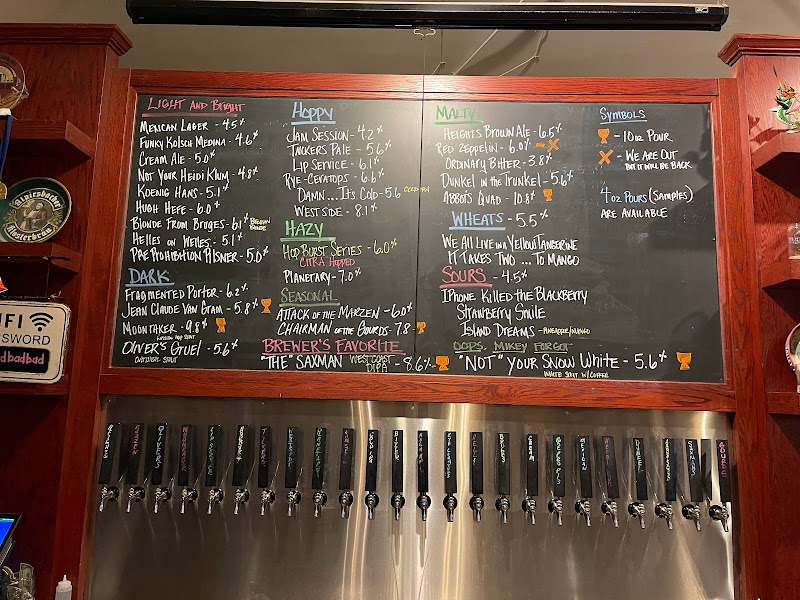 LIGHT AND BRIGHT
MEXICAN LAGER - 4.5%
FUNKY KOLSCH MEDINA - 4.6%
CREAM ALE - 5.0%
NOT YOUR HEIDI KLUM - 4.8%
KOENIG HANS - 5.1%
HUGH HEFE - 6.0%
BLONDE FROM BRUGES - 6.1% BELGIAN BLONDE
HELLES ON WELLES - 5.1%
PRE PROHIBITION PILSNER - 5.0%
DARK
FRAGMENTED PORTER - 6.2%
JEAN CLAUDE VAN GRAM - 5.8%
MOONTAKER - 9.8%
OLIVER'S GRUEL - 5.6%
OATMEAL STOUT
HOPPY
JAM SESSION - 4.2%
TUCKERS PALE - 5.6%
LIP SERVICE - 6.1%
RYE-CERATOPS - 6.6%
DAMN...IT'S COLD - 5.6 COLD IPA
WEST SIDE - 8.1%
HAZY
HOP BURST SERIES - 6.0%
CITRA HOPPED
PLANETARY - 7.0%
SEASONAL
ATTACK OF THE MARZEN - 6.0%
CHAIRMAN OF THE GOURDS - 7.8
BREWER'S FAVORITE
"THE" SAXMAN WEST COAST DIPA - 8.6%
MALTY
HEIGHTS BROWN ALE - 6.5%
RED ZEPPELIN - 6.0%
ORDINARY BITTER - 3.8%
DUNKEL IN THE TRUNKEL - 5.6%
ABBOTS QUAD - 10.8%
WHEATS - 5.5%
WE ALL LIVE IN A YELLOW TANGERINE
IT TAKES TWO ... TO MANGO
SOURS - 4.5%
IPHONE KILLED THE BLACKBERRY
STRAWBERRY SMILE
ISLAND DREAMS - PINEAPPLE/MANGO
OOPS, MIKEY FORGOT
"NOT" YOUR SNOW WHITE - 5.6%
WHITE STOUT W/ COFFEE
SYMBOLS
- 10 OZ POUR
- WE ARE OUT
BUT IT WILL BE BACK
4 OZ POURS (SAMPLES)
ARE AVAILABLE
Alpirsbacher
Klosterbräu
IFI
SSWORD
dbadbad